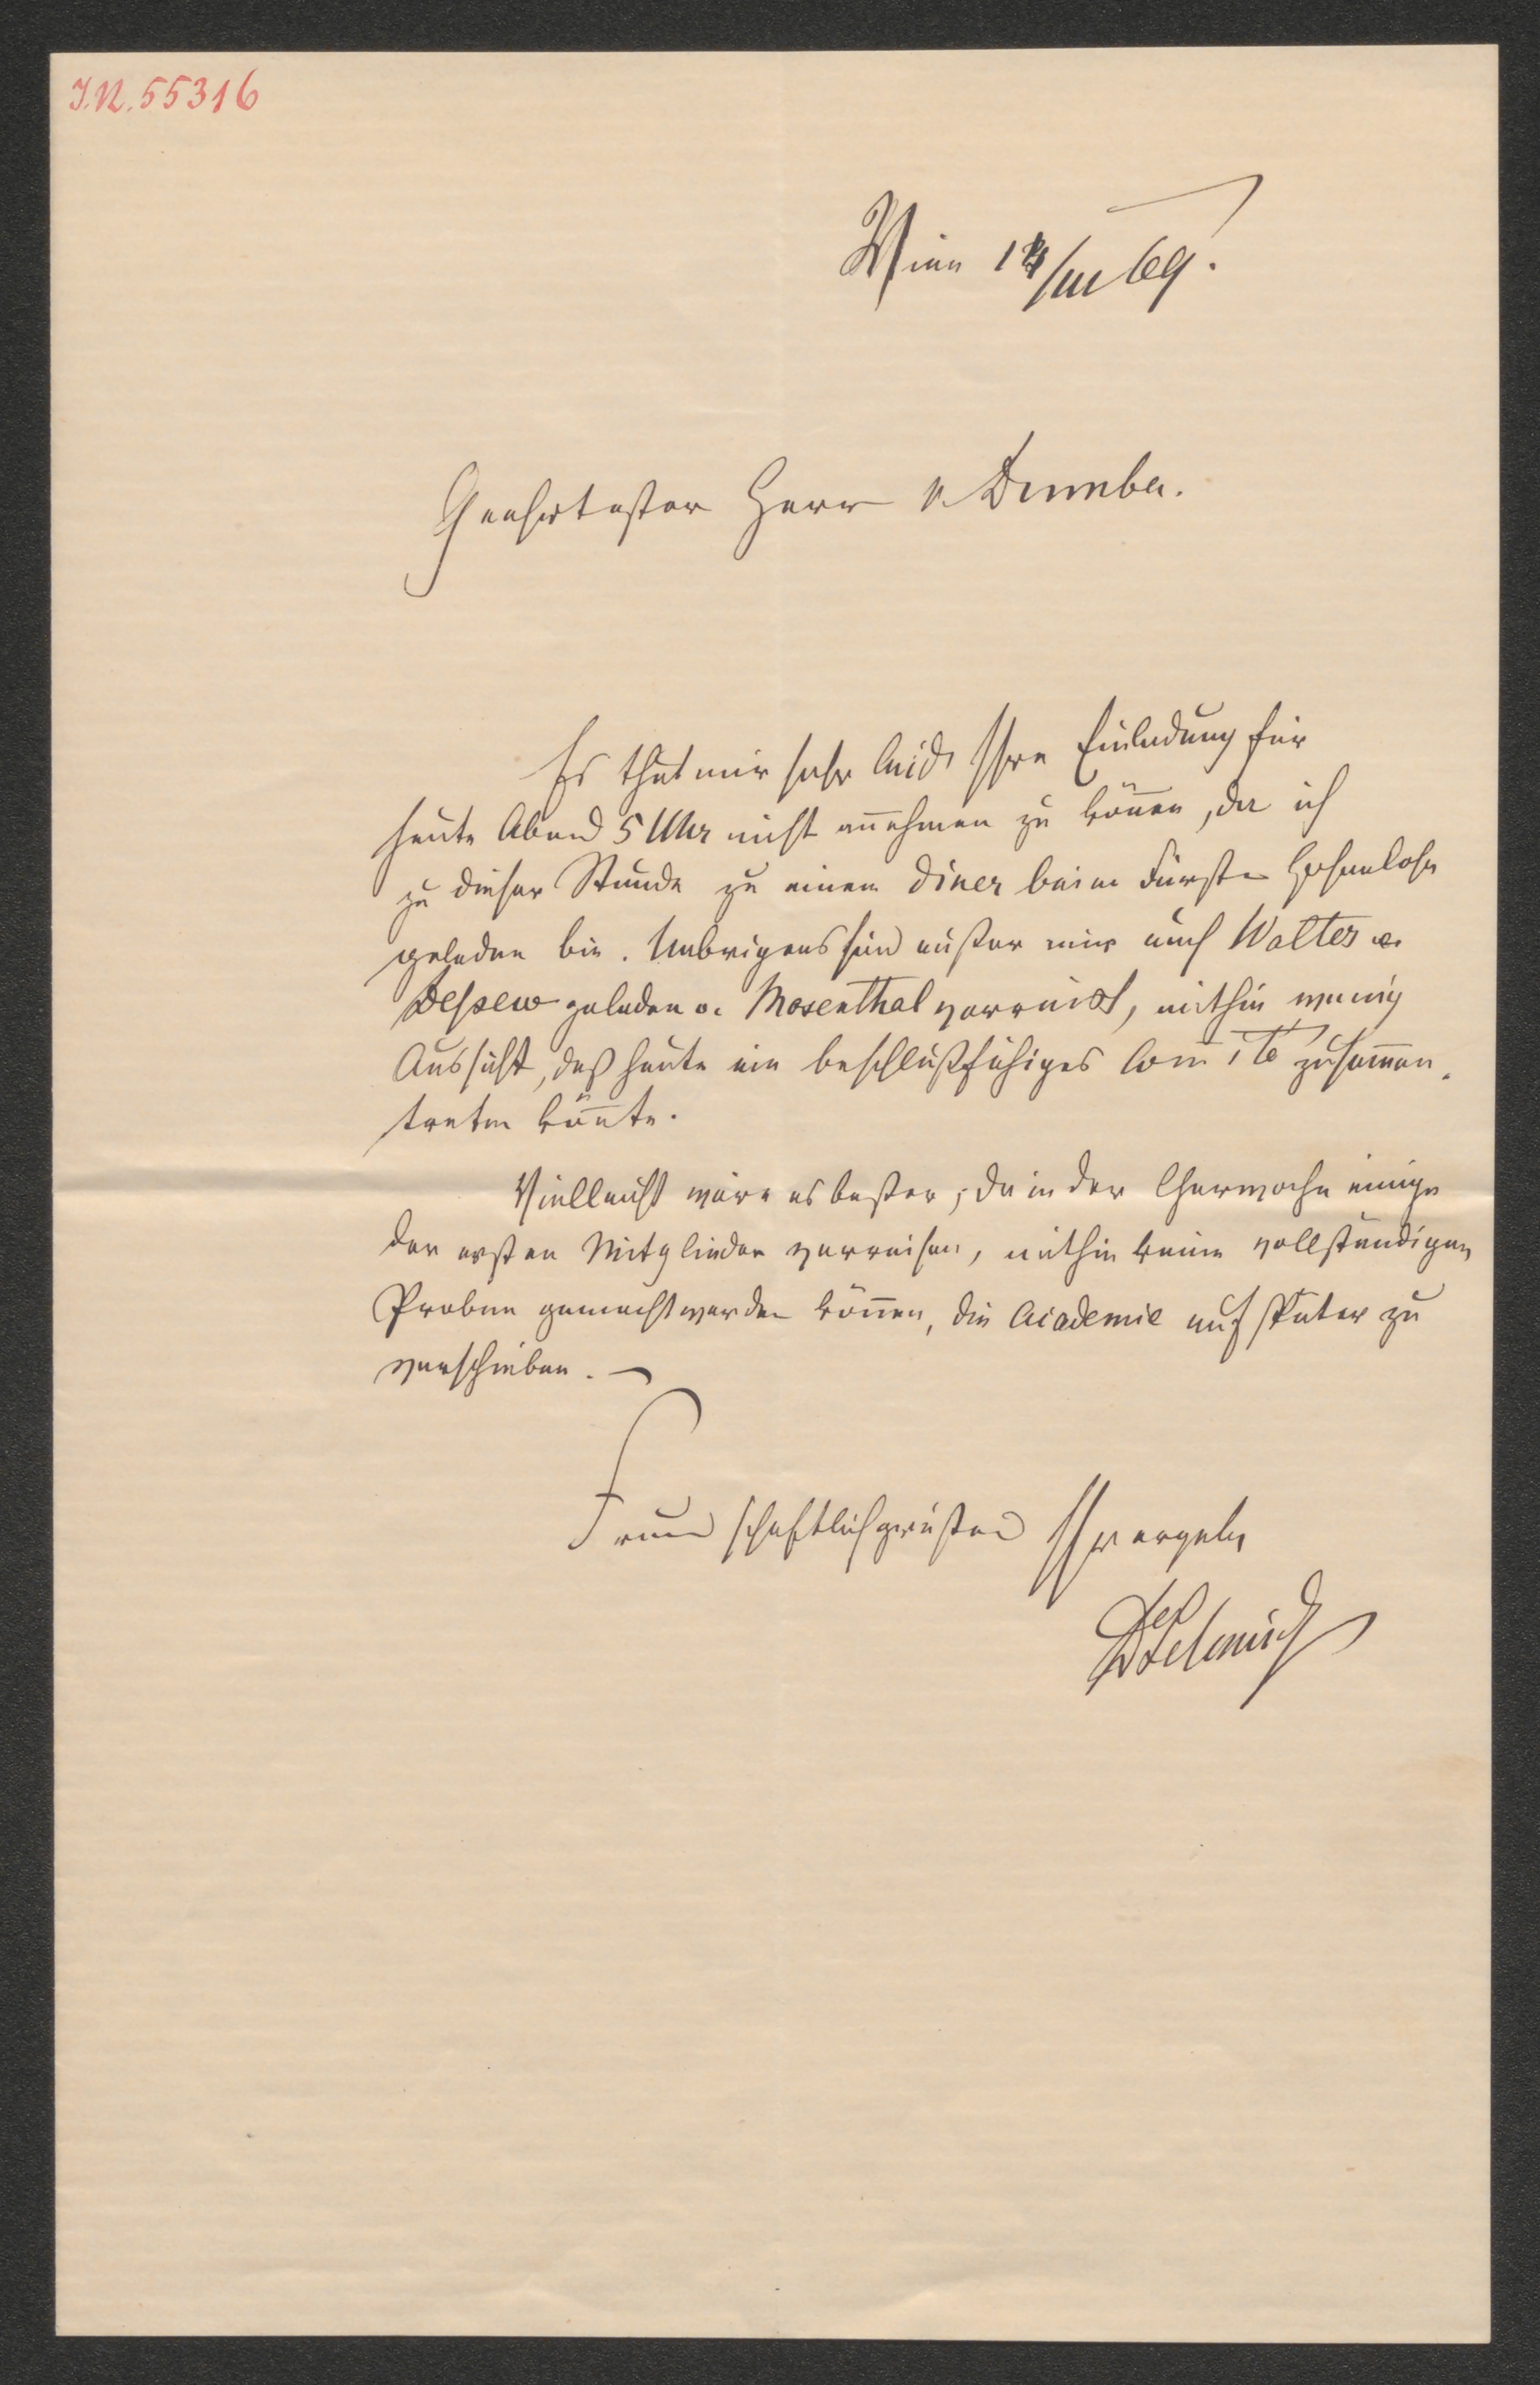 I.N. 55316
Wien 14/III 69.
Geehrtester Herr v Dumba.
Es thut mir sehr leid Ihre Einladung für
heute Abend 5 Uhr nicht añehmen zu köñen, da ich
zu dieser Stunde zu einem Diner beim Fürsten Hohenlohe
geladen bin. Uebrigens sind außer mir auch Walter u.
Dessew geladen u. Mosenthal verreist, mithin wenig
Aussicht, daß heute ein beschlußfähiges Com̄ité zusam̄en-
treten köñte.
Vielleicht wäre es besser, da in der Charwoche einige
der ersten Mitglieder verreisen, mithin keine vollständigen
Proben gemacht werden köñen, die Academie auf später zu
verschieben. —
Freundschaftlich grüßend Ihr ergeb.
Schmid